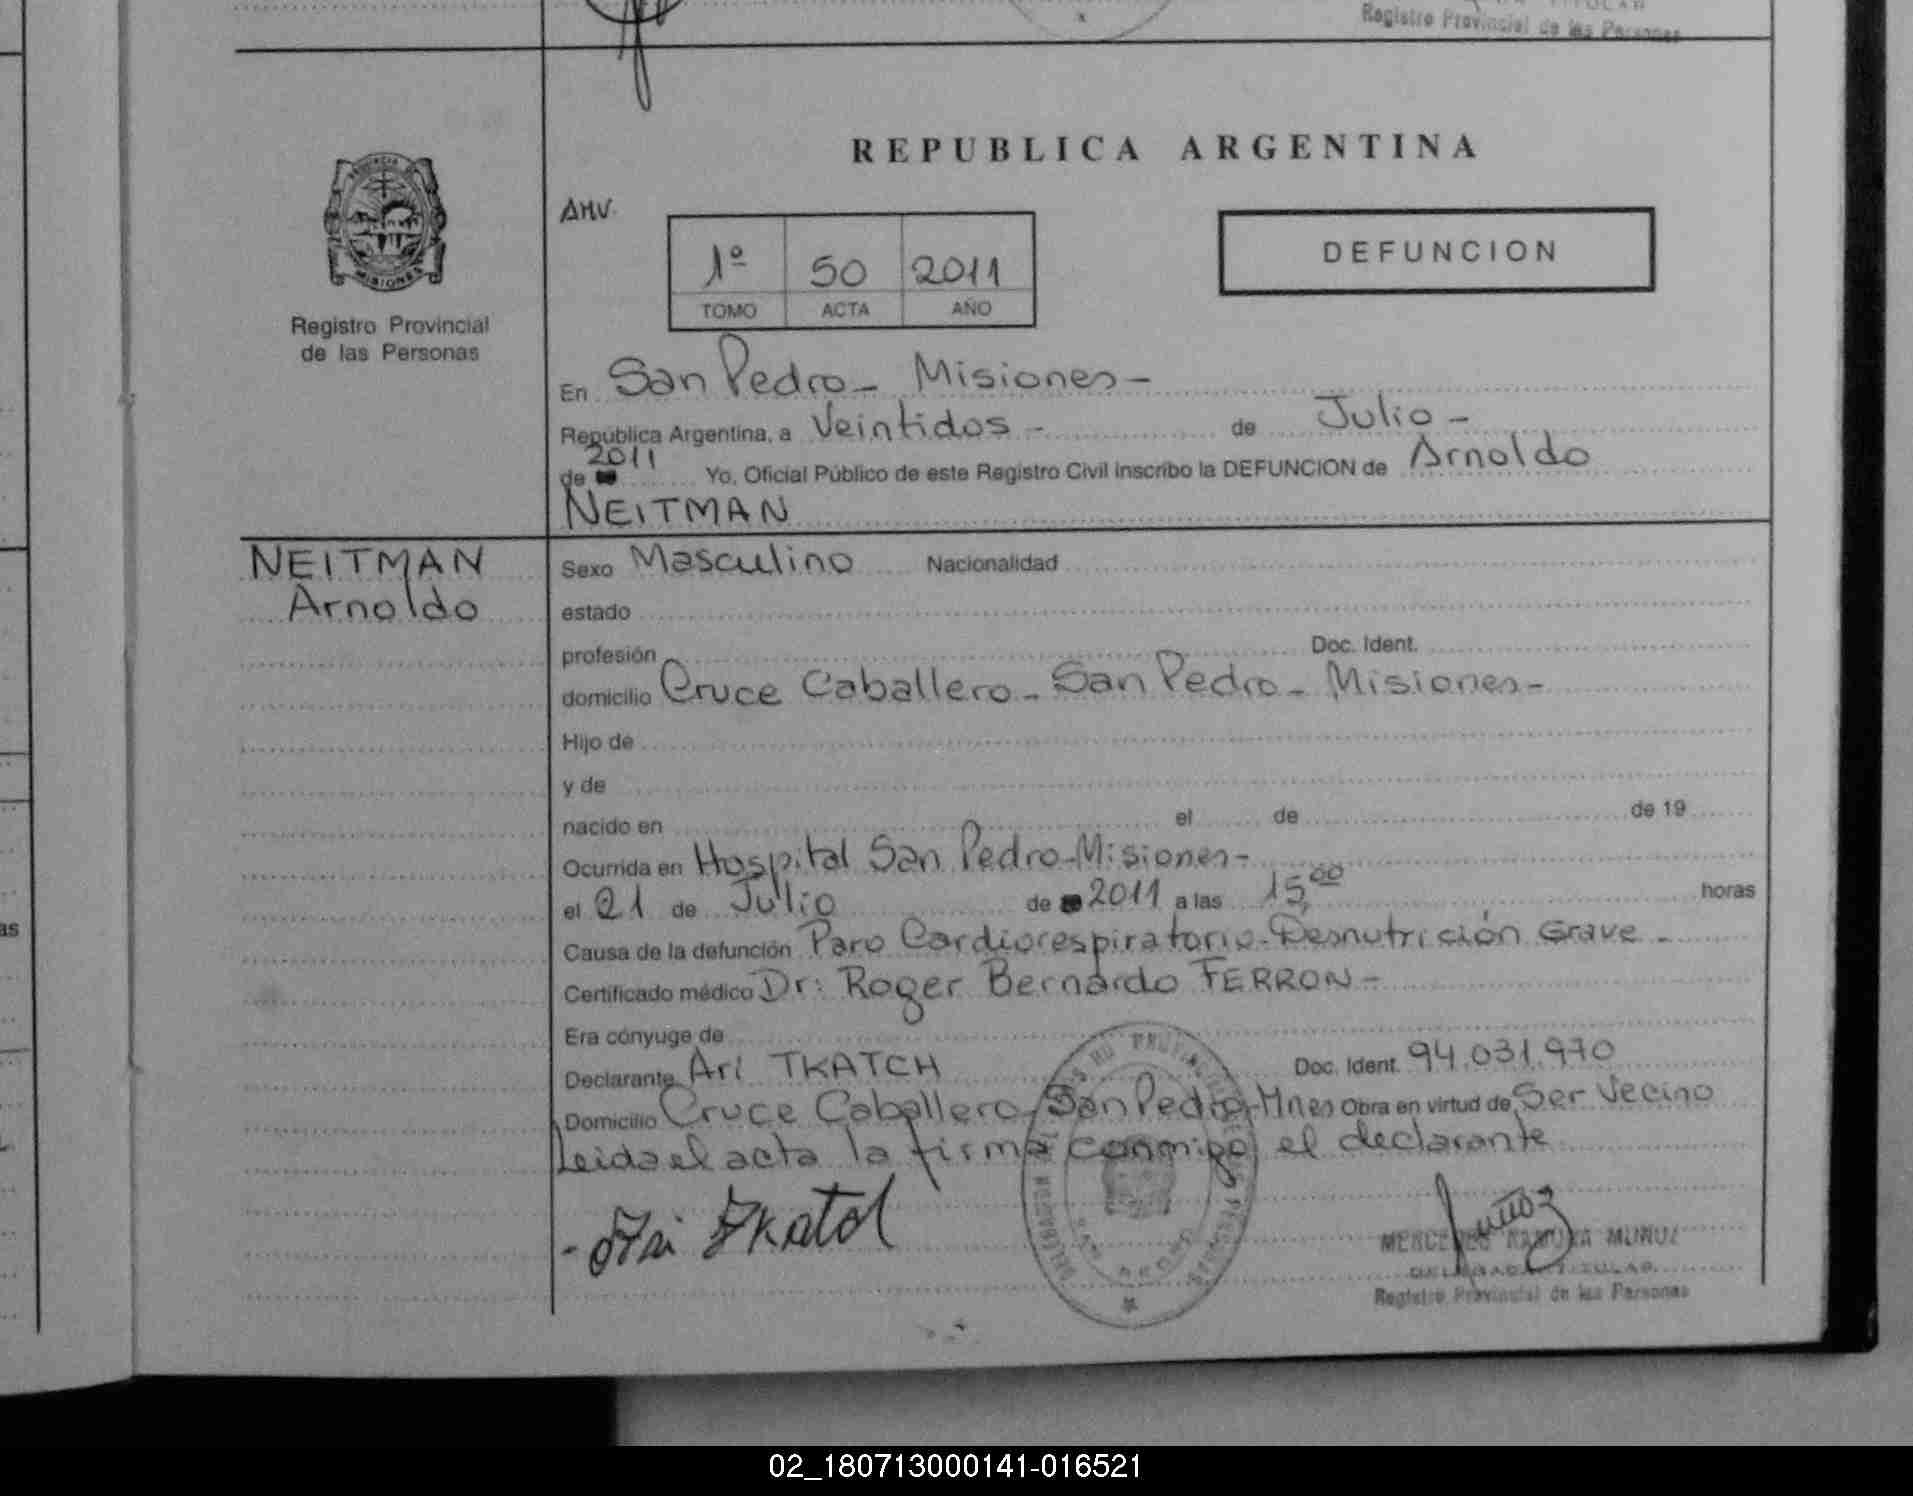 Registro Provincial de las Personas
REPUBLICA ARGENTINA
PROVINCIA
MISIONES
Registro Provincial
de las Personas
AMV.
1º 50 2011
TOMO ACTA AÑO
DEFUNCION
En San Pedro - Misiones -
República Argentina, a Veintidos - de Julio -
de 2011 Yo, Oficial Público de este Registro Civil inscribo la DEFUNCION de Arnoldo
NEITMAN
NEITMAN
Arnoldo
Sexo Masculino Nacionalidad
estado
profesión Doc. Ident.
domicilio Cruce Caballero - San Pedro - Misiones -
Hijo de
y de
nacido en el de de 19
Ocurrida en Hospital San Pedro - Misiones -
el 21 de Julio de 2011 a las 15,00 horas
Causa de la defunción Paro Cardiorespiratorio - Desnutrición Grave -
Certificado médico Dr: Roger Bernardo FERRON -
Era cónyuge de
Declarante Ari TKATCH Doc. Ident. 94.031.970
Domicilio Cruce Caballero - San Pedro - Mnes Obra en virtud de Ser Vecino
Leida el acta la firma conmigo el declarante
MERCEDES RAMONA MUÑOZ
DELEGADA TITULAR
Registro Provincial de las Personas
02_180713000141-016521